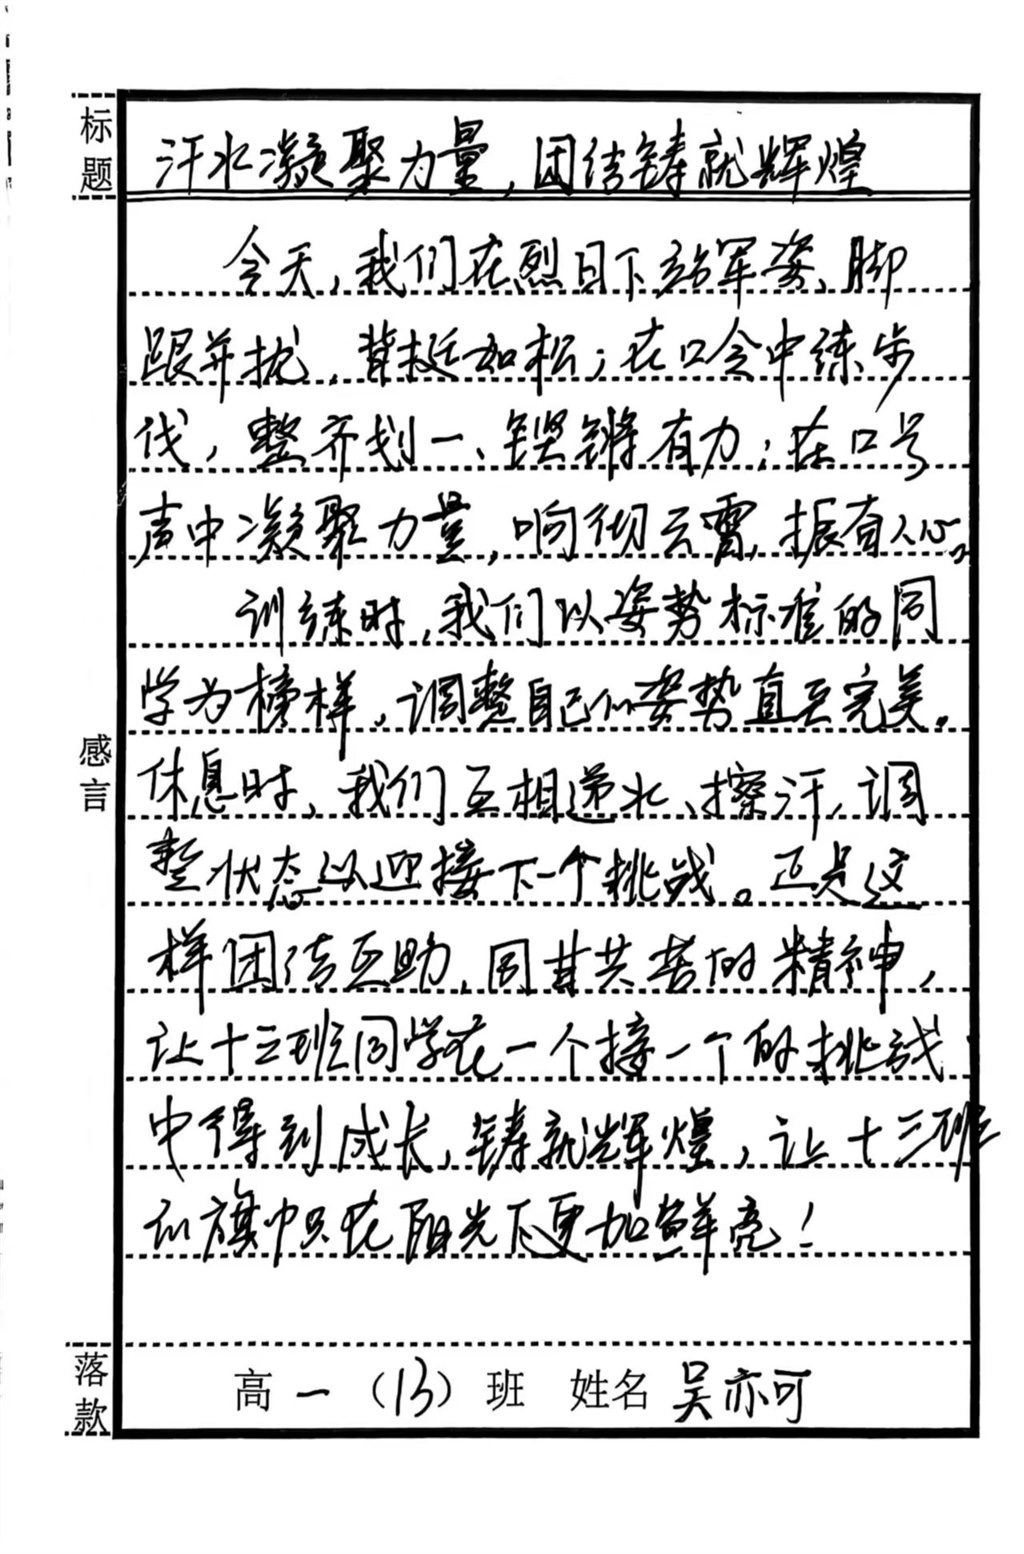 标题
汗水凝聚力量，团结铸就辉煌
今天，我们在烈日下站军姿、脚
跟并拢，背挺如松；在口令中练步
伐，整齐划一、铿锵有力；在口号
声中凝聚力量，响彻云霄，振奋人心。
训练时，我们以姿势标准的同
学为榜样，调整自己的姿势直至完美。
休息时，我们互相递水、擦汗，调
整状态以迎接下一个挑战。正是这
样团结互助，同甘共苦的精神，
让十三班同学在一个接一个的挑战
中得到成长，铸就辉煌，让十三班
的旗帜在阳光下更加鲜亮！
感言
落款
高一（13）班 姓名 吴亦可